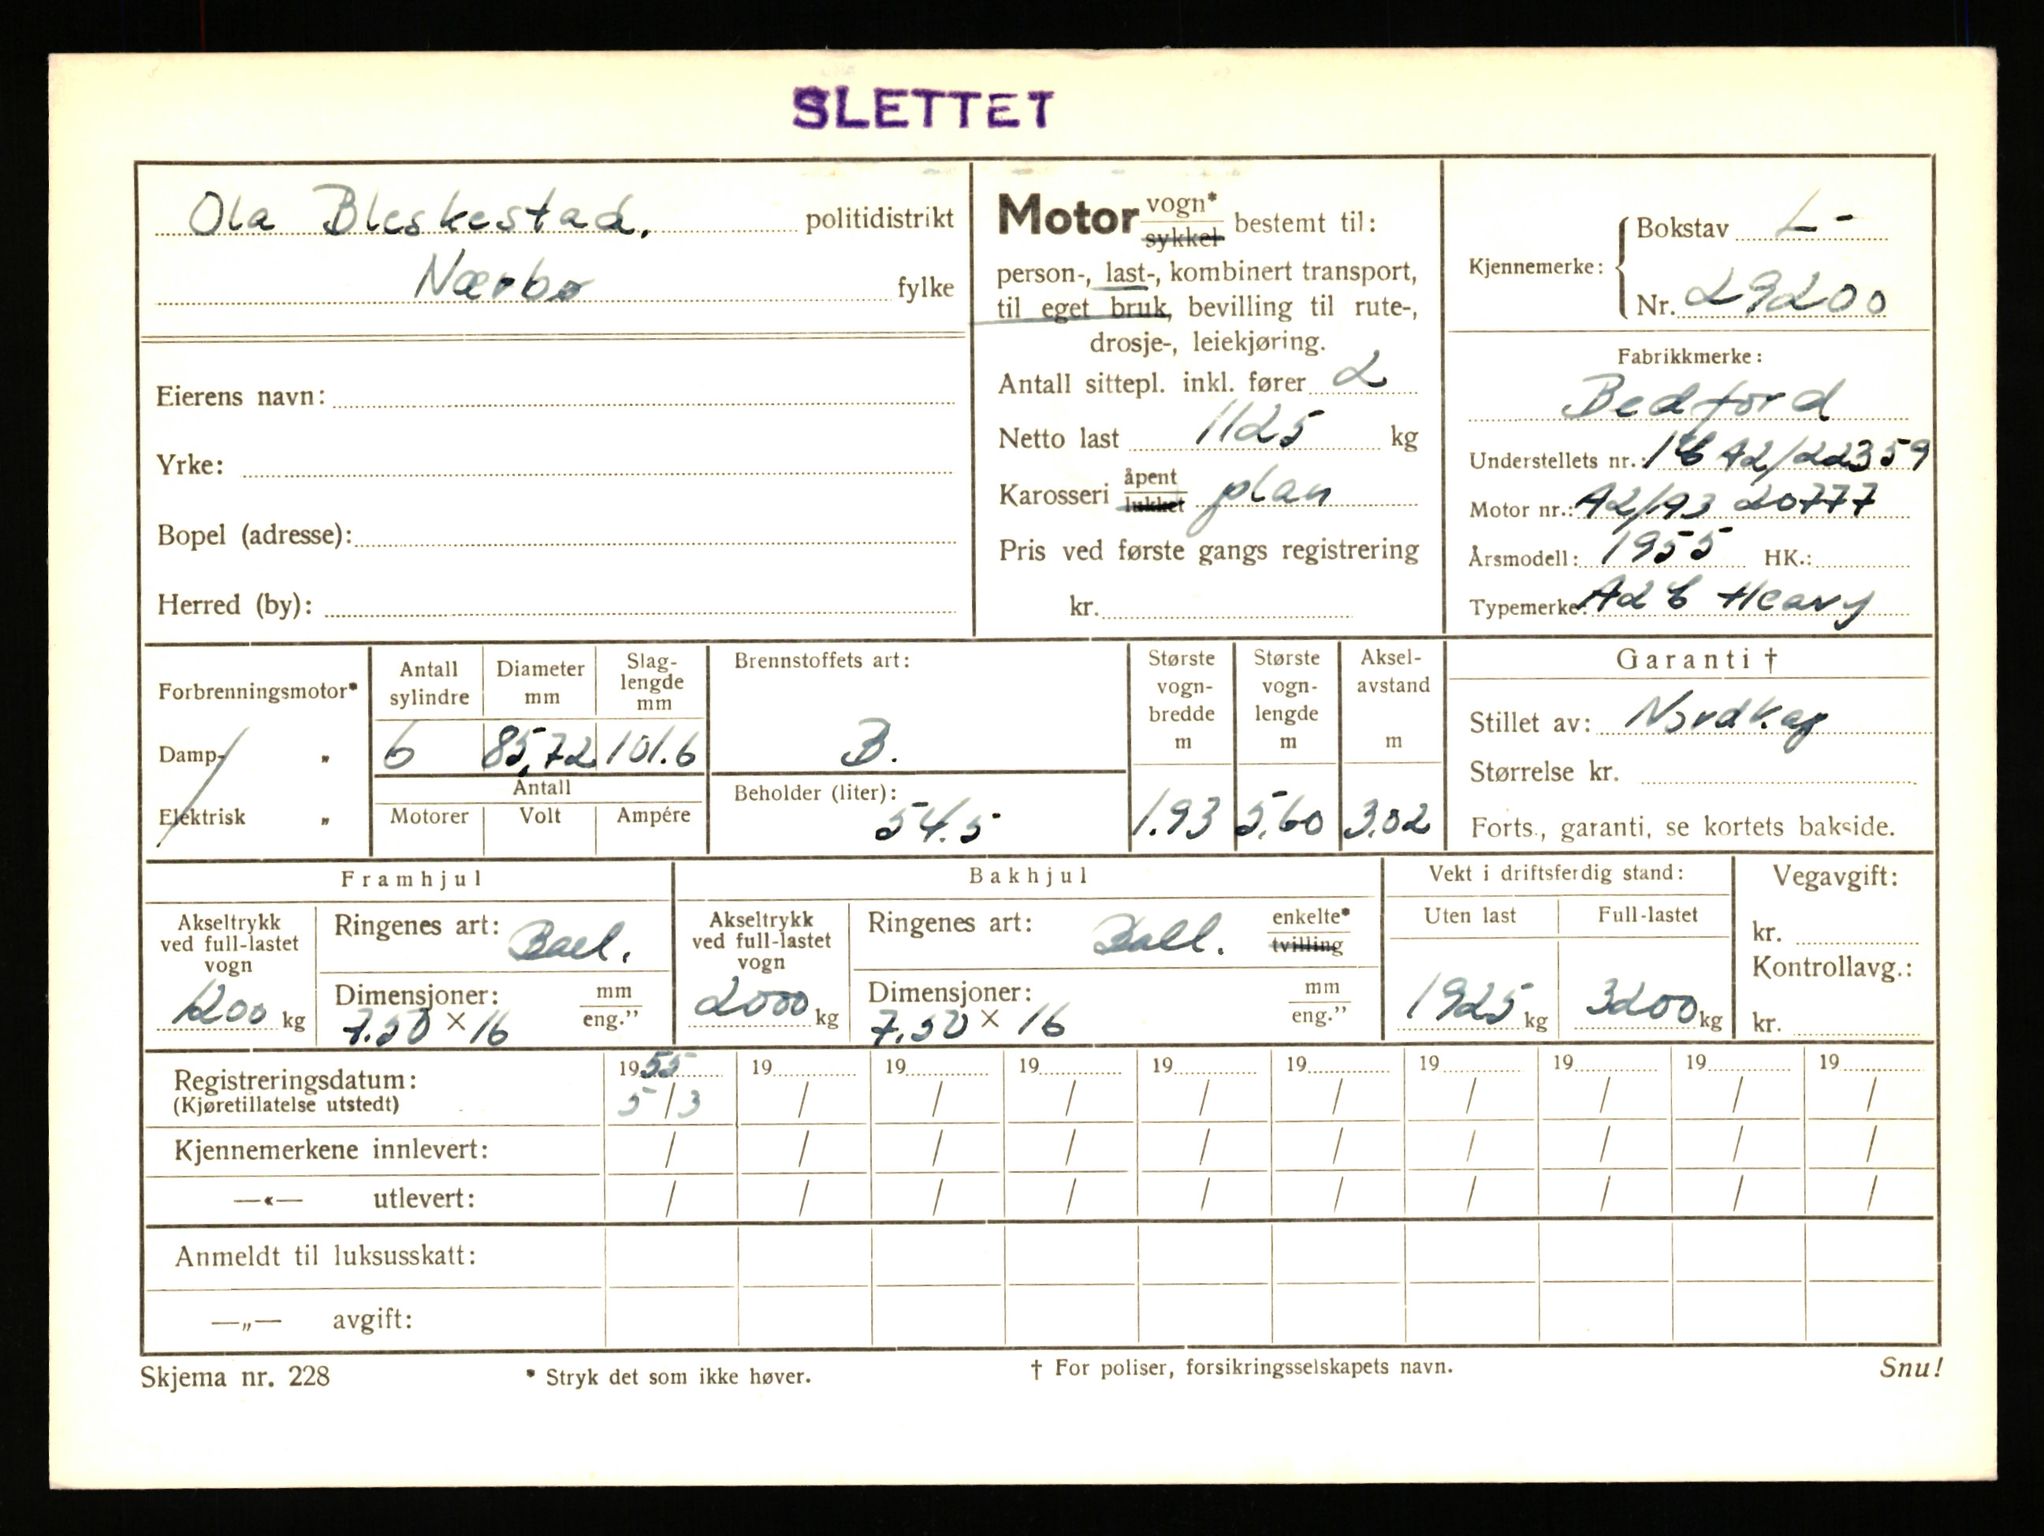 SLETTET
Ola Bleskestad, politidistrikt
Nærbø fylke
Eierens navn:
Yrke:
Bopel (adresse):
Herred (by):
Motor vogn* sykkel bestemt til:
person-, last-, kombinert transport,
til eget bruk, bevilling til rute-,
drosje-, leiekjøring.
Antall sittepl. inkl. fører 2
Netto last 1125 kg
Karosseri åpent lukket plan
Pris ved første gangs registrering
kr.
Kjennemerke: Bokstav L-
Nr. 29200
Fabrikkmerke:
Bedford
Understellets nr.: A2/22359
Motor nr.: A2/193 20777
Årsmodell: 1955 HK.:
Typemerke: Heavy
Forbrenningsmotor*
Damp- „
Elektrisk „
Antall sylindre
Diameter mm
Slag-
lengde
mm
6 85,72 101.6
Antall
Motorer Volt Ampére
Brennstoffets art:
B.
Beholder (liter):
54.5
Største vogn-bredde m
1.93
Største vogn-lengde m
5,60
Aksel-avstand m
3.02
Garanti †
Stillet av: Nordkap
Størrelse kr.
Forts., garanti, se kortets bakside.
Framhjul
Akseltrykk
ved full-lastet
vogn
1200 kg
Ringenes art: Ball.
Dimensjoner: mm eng.”
7.50 × 16
Bakhjul
Akseltrykk
ved full-lastet
vogn
2000 kg
Ringenes art: Ball. enkelte* tvilling
Dimensjoner: mm eng.”
7.50 × 16
Vekt i driftsferdig stand:
Uten last Full-lastet
1925 kg 3200 kg
Vegavgift:
kr.
Kontrollavg.:
kr.
Registreringsdatum: 1955 19 19 19 19 19 19 19 19 19
(Kjøretillatelse utstedt) 5/3 / / / / / / / / /
Kjennemerkene innlevert: / / / / / / / / / /
—«— utlevert: / / / / / / / / / /
Anmeldt til luksusskatt:
—„— avgift:
Skjema nr. 228 * Stryk det som ikke høver. † For poliser, forsikringsselskapets navn. Snu!